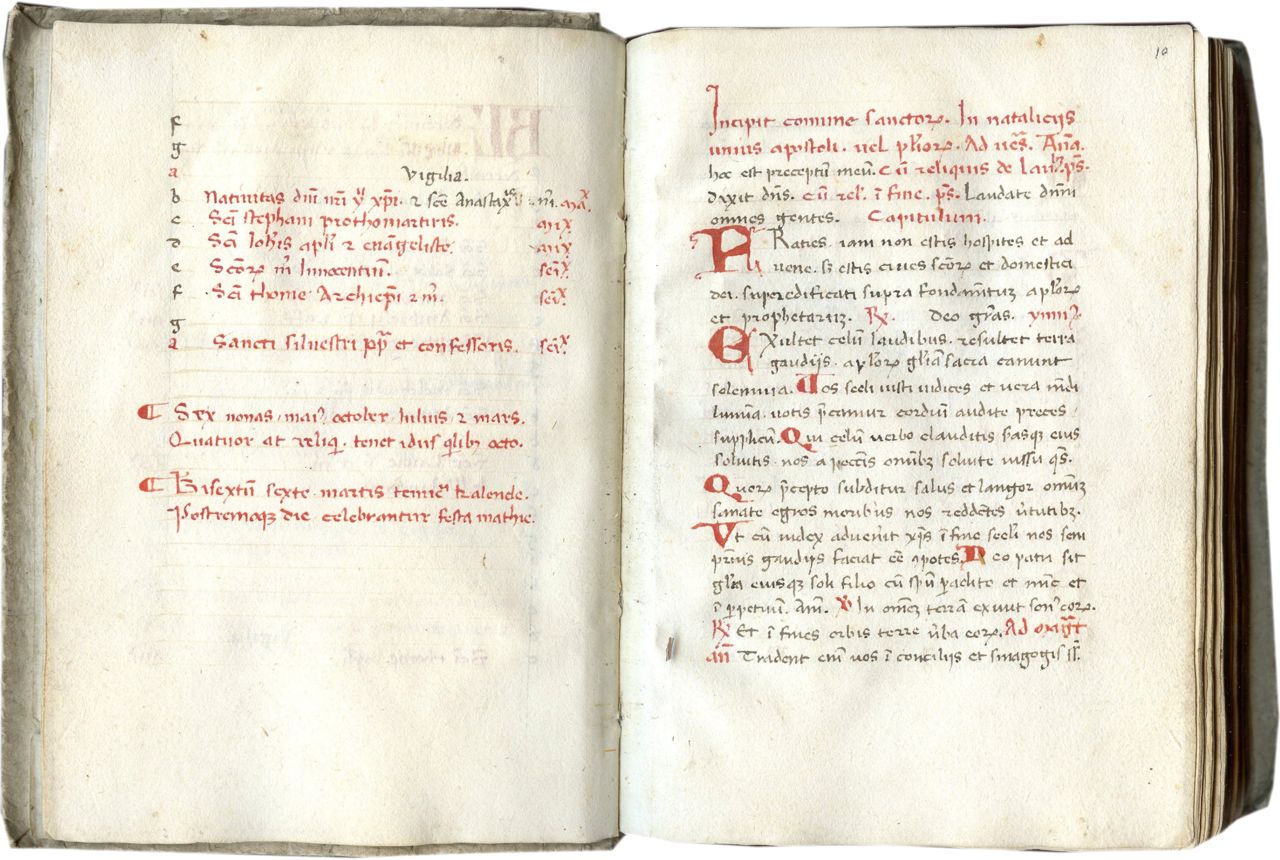 f
g
a
Vigilia.
b Nativitas dñi nri xpi. 
c Sci Stephani prothomartiris.
d Sci Iohis apli et evangeliste.
e Scõrꝝ Innocentiũ.
f Sci thome Archiepi
g
a Sancti silvestri pp et confessoris.
Sex nonas october Iulius mars.
Quatuor at reliq. tenet idus octo.
Bisextũ sexte martis kalende.
Postremaqꝫ die celebrantur festa mathie.
10
Incipit comune sanctorꝝ. In nataliciis
unius apostoli. vel plirorꝝ. Ad Aña.
hoc est preceptũ meũ. Cũ reliquis de
dixit dñs. Cũ rel. ĩ fine ps. Laudate dnm
omnes gentes. Capitulum.
Fratres. iam non estis hospites et ad
vene. sꝫ estis cives scõrꝝ et domestici
dei. superedificati supra fondamẽtũ aplorꝝ
et prophetarũ. ℟. deo gras.
Exultet celũ laudibus. resultet terra
gaudiis. aplorꝝ gliam sacra canunt
solemnia. Vos secli iusti iudices et vera mũdi
lumina. votis precamur cordiũ audite preces
supplicũ. Qui celũ verbo clauditis serasqꝫ eius
solvitis. nos a peccatis omibꝫ solvite iussu qs.
Quorꝝ pcepto subditur salus et langor omiũ
sanate egros moribus nos reddẽtes vtutibꝫ.
Ut cũ iudex advenit xps ĩ fine secli nos sem
piterni gaudiis faciat eẽ cõpotes. Deo patri sit
gla eiusqꝫ soli filio cũ spu paclito et nunc et
ĩ ppetuum. Am. ℣ In omẽ terrã exivit sonꝰ eorꝝ.
℟ Et ĩ fines orbis terre vba eorꝝ. Ad
añ Tradent enĩ vos ĩ conciliis et sinagogis